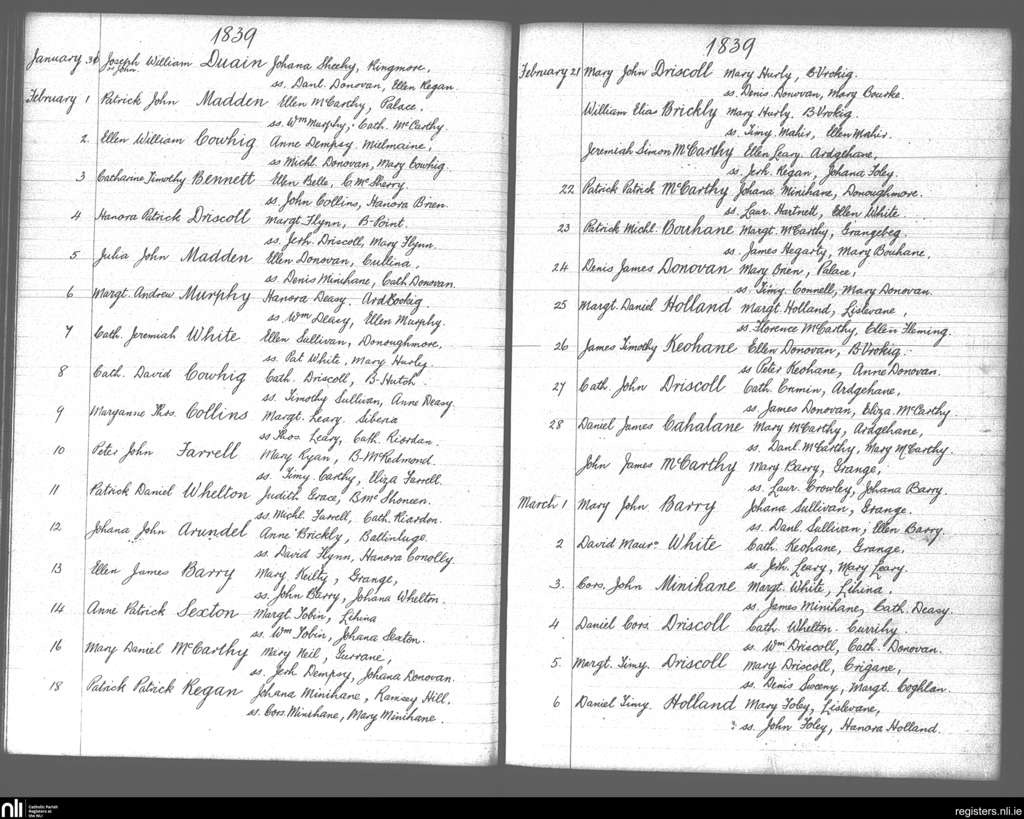 1839
January 31 Joseph William Duain Johana Sheehy, Ringmore,
or John
ss. Danl. Donovan, Ellen Regan
February 1 Patrick John Madden Ellen McCarthy, Palace.
ss. Wm Murphy, Cath. McCarthy.
2. Ellen William Cowhig Anne Dempsy Mielmaine,
ss Michl. Donovan, Mary Cowhig.
3 Catharine Timothy Bennett Ellen Belle, C.McSherry.
ss. John Collins, Hanora Brien.
4 Hanora Patrick Driscoll Margt. Flynn, B-Point.
ss. Jerh. Driscoll, Mary Flynn.
5 Julia John Madden Ellen Donovan, Cullina,
ss Denis Minihane, Cath. Donovan.
6 Margt. Andrew Murphy Hanora Deasy.
ss. Wm Deasy, Ellen Murphy.
7 Cath. Jeremiah White Ellen Sullivan, Donoughmore,
ss. Pat White, Mary Hurley
8 Cath. David Cowhig Cath. Driscoll,
ss. Timothy Sullivan, Anne Deasy.
9 Maryanne Thos. Collins Margt. Leary. Siberia
ss Thos. Leary, Cath. Riordan.
10 Peter John Farrell Mary Ryan, B-McRedmond.
ss. Timy Carthy, Eliza Farrell.
11 Patrick Daniel Whelton Judith Grace, BMcShoneen.
ss. Michl. Farrell, Cath. Riordan.
12 Johana John Arundel Anne Brickly, Ballinluge.
ss David Flynn, Hanora Conolly.
13 Ellen James Barry Mary Keilty, Grange,
ss. John Barry, Johana Whelton.
14 Anne Patrick Sexton Margt Tobin, Lihina
ss. Wm Tobin, Johana Sexton.
16 Mary Daniel McCarthy Mary Neil, Gurrane,
ss. Jerh Dempsy, Johana Donovan.
18 Patrick Patrick Regan Johana Minihane, Ramsey Hill.
ss. Cors. Minihane, Mary Minihane.
1839
February 21 Mary John Driscoll Mary Hurly, B-Vrokig.
ss. Denis Donovan, Mary Bourke.
William Elias Brickly Mary Hurly. B-Vrokig.
ss. Timy. Mahir, Ellen Mahir.
Jeremiah Simon McCarthy Ellen Leary Ardgehane,
ss. Jerh. Regan, Johana Foley.
22 Patrick Patrick McCarthy Johana Minihane, Donoughmore.
ss. Laur. Hartnett, Ellen White
23 Patrick Michl. Bouhane Margt. McCarthy, Grangebeg.
ss. James Hegarty, Mary Bouhane,
24 Denis James Donovan Mary Brien, Palace,
ss. Timy. Connell, Mary Donovan.
25 Margt. Daniel Holland Margt Holland, Lislevane,
ss. Florence McCarthy, Ellen Fleming.
26 James Timothy Keohane Ellen Donovan, B-Vrokig.
ss Peter Keohane, Anne Donovan.
27 Cath. John Driscoll Cath. Crimin, Ardgehane,
ss James Donovan, Eliza McCarthy.
28 Daniel James Cahalane Mary McCarthy, Ardgehane,
ss. Danl. McCarthy, Mary McCarthy.
John James McCarthy Mary Barry, Grange,
ss. Laur. Crowley, Johana Barry.
March 1 Mary John Barry Johana Sullivan, Grange.
ss. Danl. Sullivan, Ellen Barry.
2 David Maure. White Cath. Keohane, Grange.
ss. Jerh. Leary, Mary Leary.
3. Cors. John Minihane Margt. White, Lihina,
ss. James Minihane, Cath. Deasy.
4 Daniel Cors. Driscoll Cath. Whelton. Currihy
ss. Wm Driscoll, Cath. Donovan.
5. Margt. Timy. Driscoll Mary Driscoll, Crigane,
ss. Denis Sweeny, Margt. Coghlan.
6 Daniel Timy. Holland Mary Foley, Lislevane,
ss. John Foley, Hanora Holland.
nli
Catholic Parish
Registers at
the NLI
registers.nli.ie